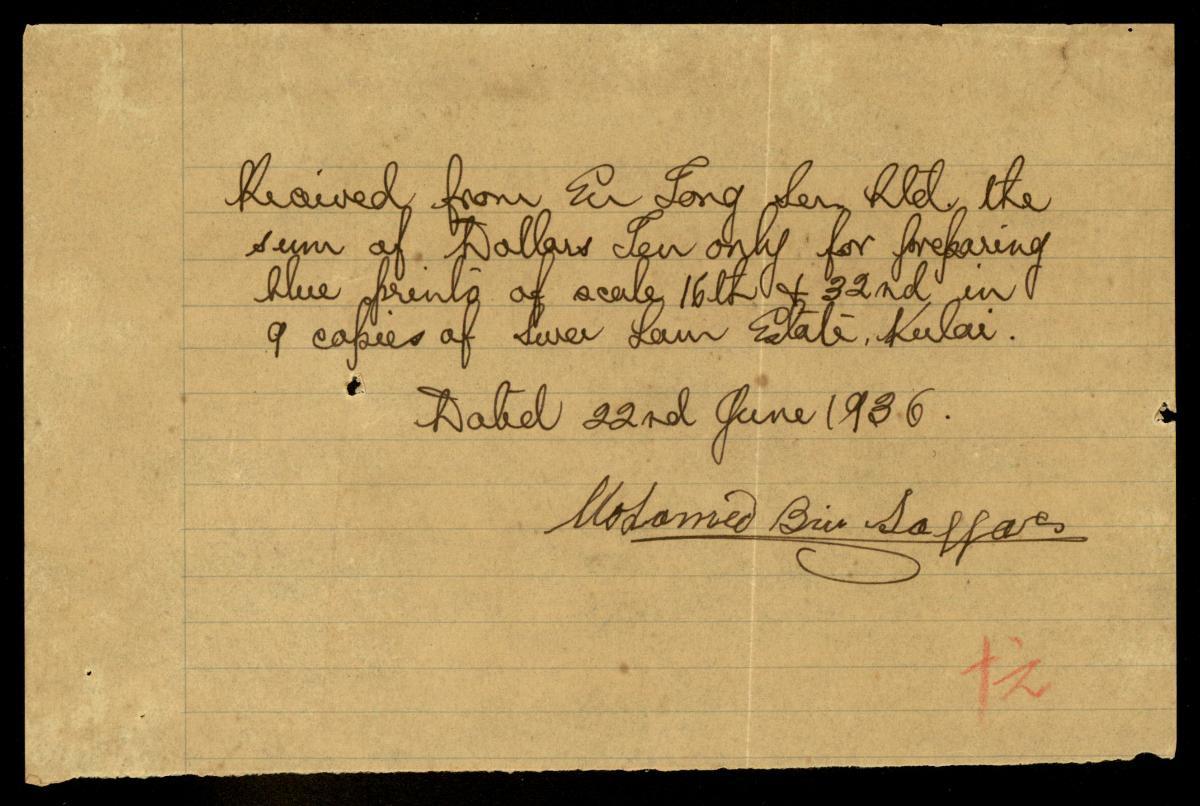 Received from Eu Tong Sen Ltd. the
sum of Dollars Ten only for preparing
blue prints of scale 16th & 32nd in
9 copies of Swee Lam Estate, Kulai.
Dated 22nd June 1936.
Mohamed Bin